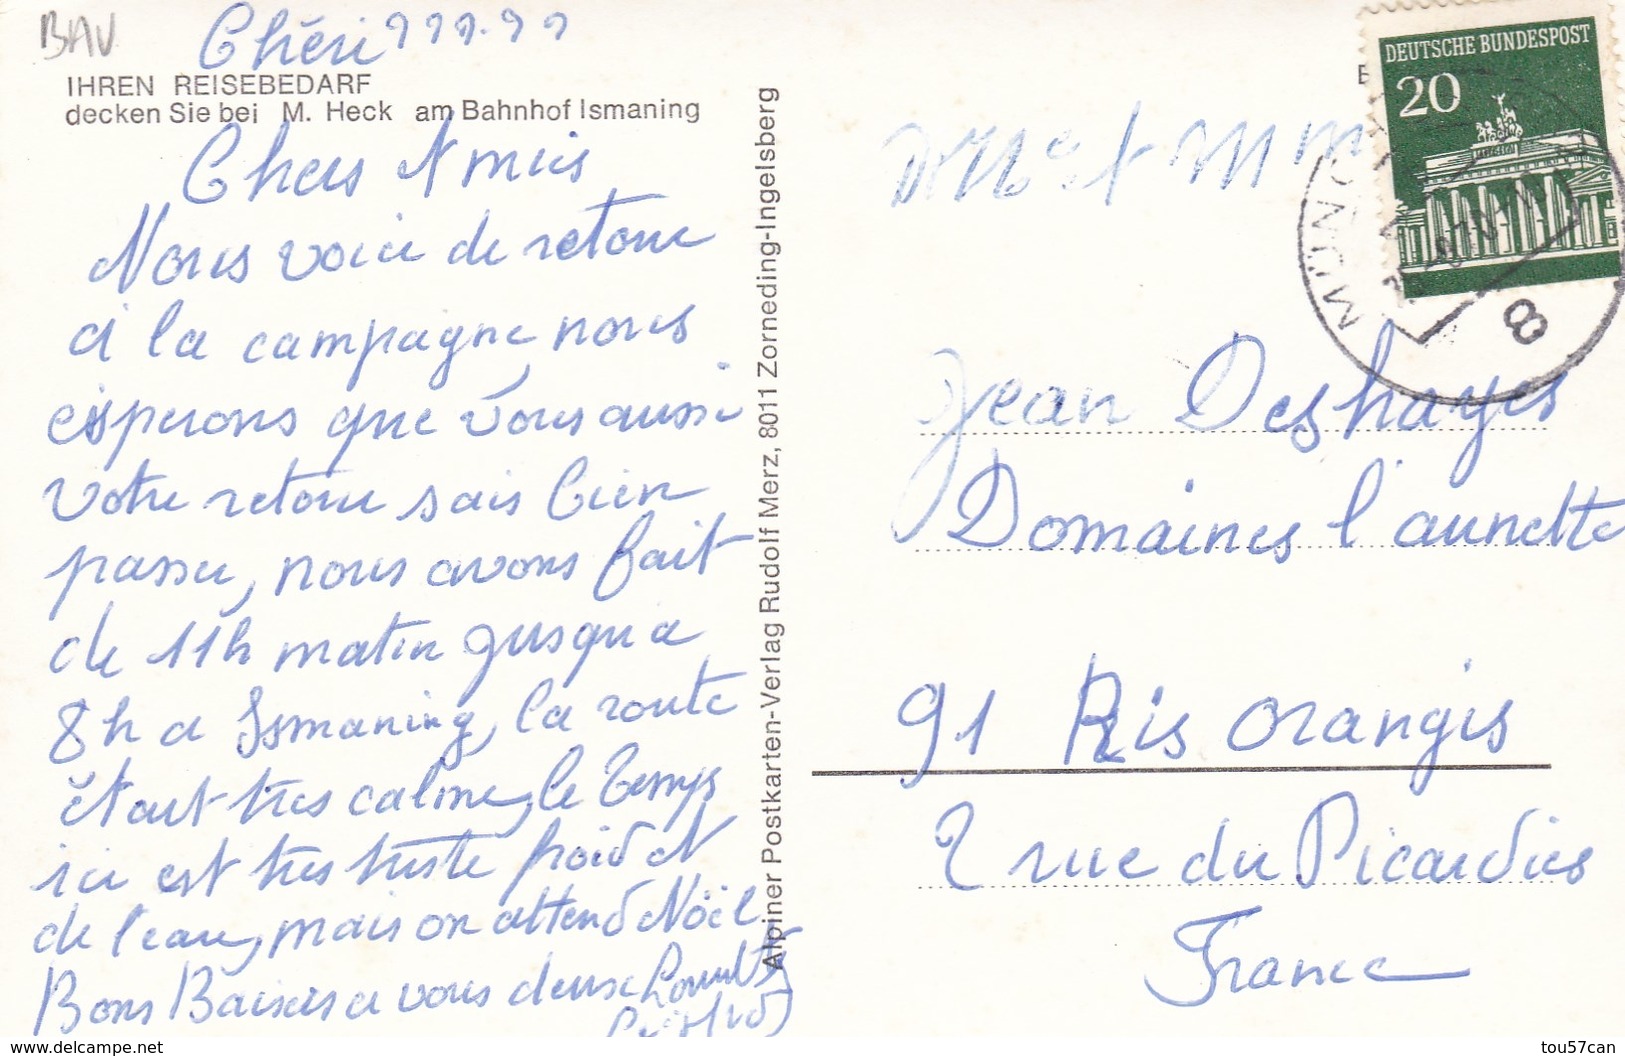 BAV
Chéri ? ? ? . ? ?
IHREN REISEBEDARF
decken Sie bei M. Heck am Bahnhof Ismaning
Chers Amis
Nous voici de retour
à la campagne, nous
esperons que vous aussi
votre retour sais bien
passer, nous avons fait
de 11h matin jusqu a
8h a Ismaning, la route
étaut tres calme, le temps
ici est tres triste froid et
de l'eau, mais on attend Nöel
Bons Baisers a vous deux
Alpiner Postkarten-Verlag Rudolf Merz, 8011 Zorneding-Ingelsberg
DEUTSCHE BUNDESPOST
20
MÜNCH
8
Mr et Mm
Jean Deshayes
Domaines l'aunette
91 Ris Orangis
2 rue du Picardies
France
www.delcampe.net
tou57can